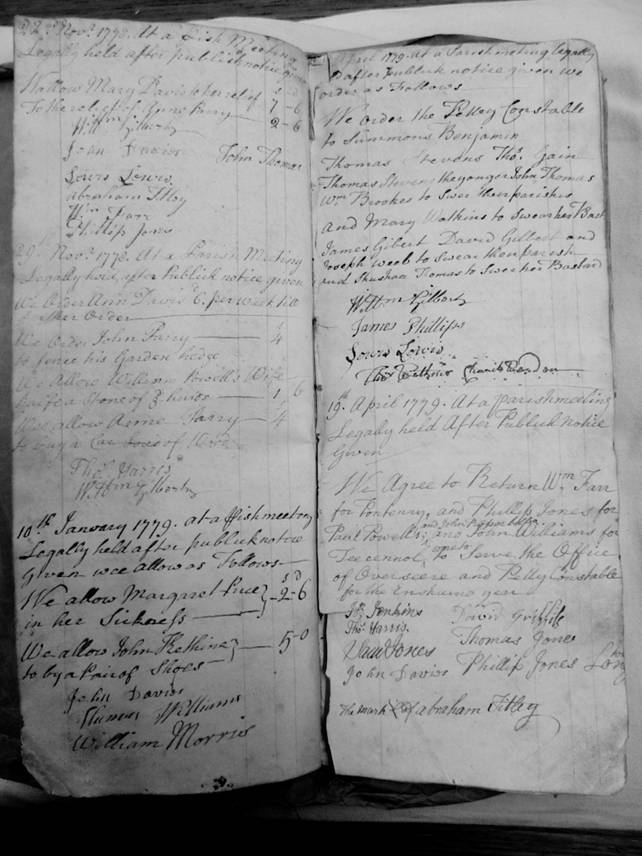 22d Novr 1778. At a Pish Meeting
Legally held after publick notice given
Wallow Mary David the relef of s d 7-6
To the relef of Anne Parry 2-6
Willm Gilbert
John Davies John Thomas
Lewis Lewis
abraham Titley
Wm Farr
Phillip Jones
29th Novr 1778. At a Parish Meeting
Legally held after Publick notice given
We Order Ann Davis 6d per week till
further Order
We Order John Parry 4
to fence his Garden hedge
We Allow William Powell's Wife
half a Stone of 1-6
Wee allow Anne Parry 4
to buy a Coat
Thos Harris
Willm Gilbert
10th January 1779. at a pish meeting
Legally held after publick notice
Given wee allow as Follows
We allow Margaret Price s d 2-6
in her Sickness
We allow John 5-0
to by a Pair of Shoes
John Davies
Williams
William Morris
April 1779. At a Parish meeting legally
after publick notice given we
order as Follows
We order the Pettey Constable
to Summons Benjamin
Thomas Stevens Thos Jain
Thomas Stevens the yonger John Thomas
Wm Brookes to Swer their parishes
and Mary Watkins to swear her Bast
James Gibert David Gilbert and
Joseph Weeb to Swear thon parish
and Thomas to Swer her Bastard
Willm Gilbert
James Phillips
Lewis Lewis
Thos
19th April 1779. At a parish meeting
Legally held After Publick Notice
Given
We Agree to Return Wm Farr
for and Phillip Jones for
Paul Powells and John for
and John Williams for
to Serve the Office
of Overseere and Petty Constable
for the Enshuing year
Jn Jenkins David Griffiths
Thos Harris Thomas Jones
Jones
John Davies Phillip Jones
The mark X of abraham Titley